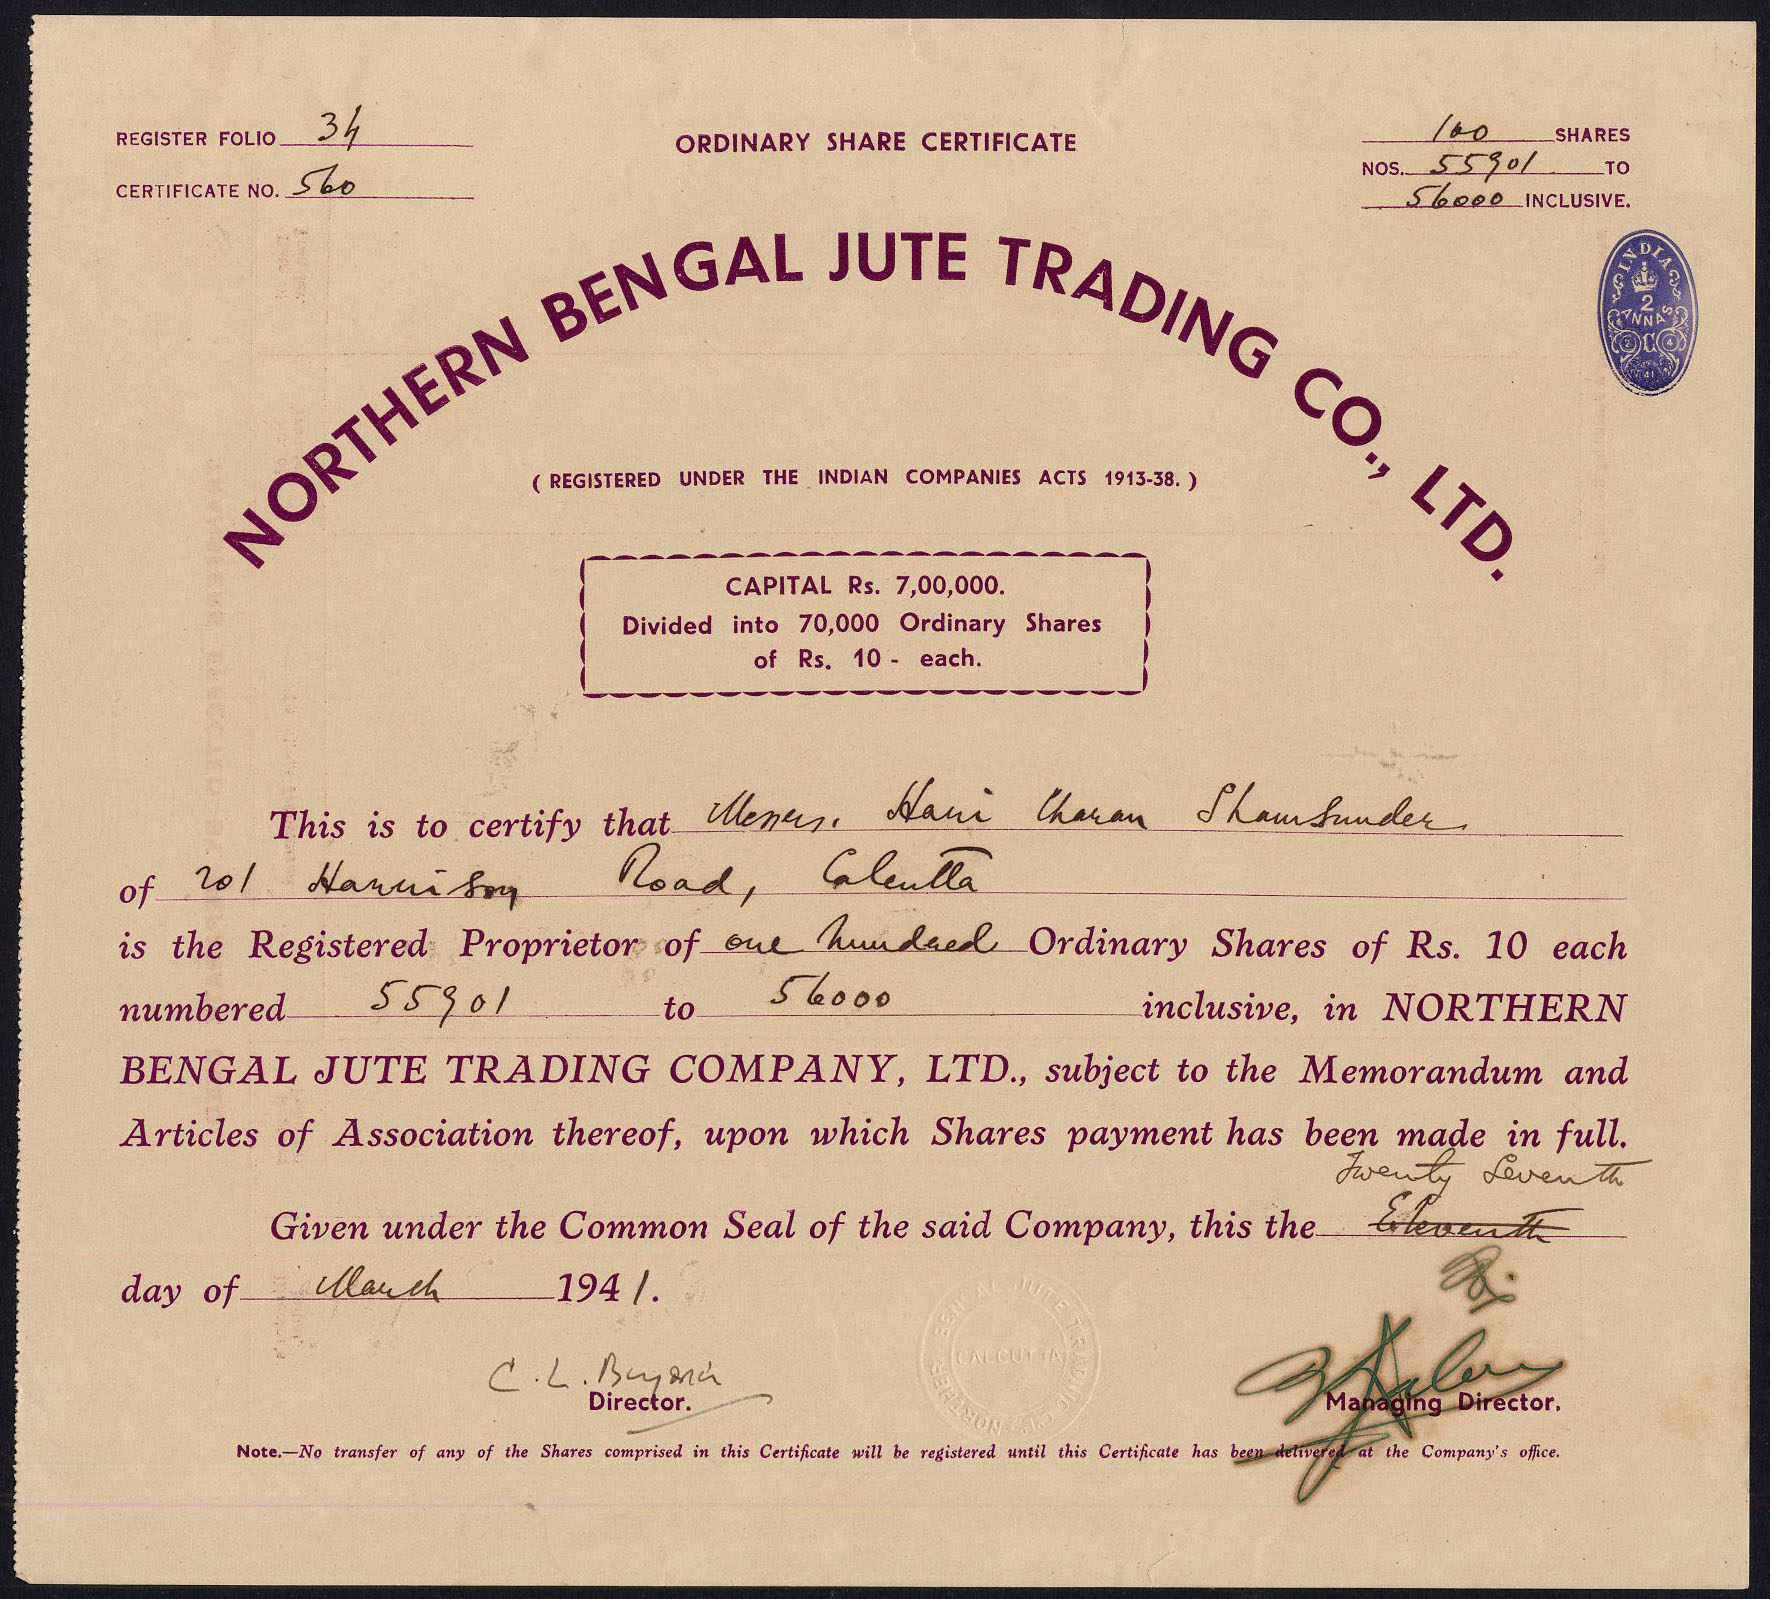 REGISTER FOLIO 34
CERTIFICATE NO. 560
ORDINARY SHARE CERTIFICATE
100 SHARES
NOS. 55901 TO
56000 INCLUSIVE.
INDIA
2
ANNAS
C
NORTHERN BENGAL JUTE TRADING CO., LTD.
( REGISTERED UNDER THE INDIAN COMPANIES ACTS 1913-38. )
CAPITAL Rs. 7,00,000.
Divided into 70,000 Ordinary Shares
of Rs. 10 - each.
This is to certify that Messrs. Hari Charan Shamsunder
of 201 Harrison Road, Calcutta
is the Registered Proprietor of one hundred Ordinary Shares of Rs. 10 each
numbered 55901 to 56000 inclusive, in NORTHERN
BENGAL JUTE TRADING COMPANY, LTD., subject to the Memorandum and
Articles of Association thereof, upon which Shares payment has been made in full.
Twenty Seventh
Given under the Common Seal of the said Company, this the Eleventh
day of March 1941.
CALCUTTA
C. L.
Director.
Managing Director.
Note.—No transfer of any of the Shares comprised in this Certificate will be registered until this Certificate has been delivered at the Company's office.